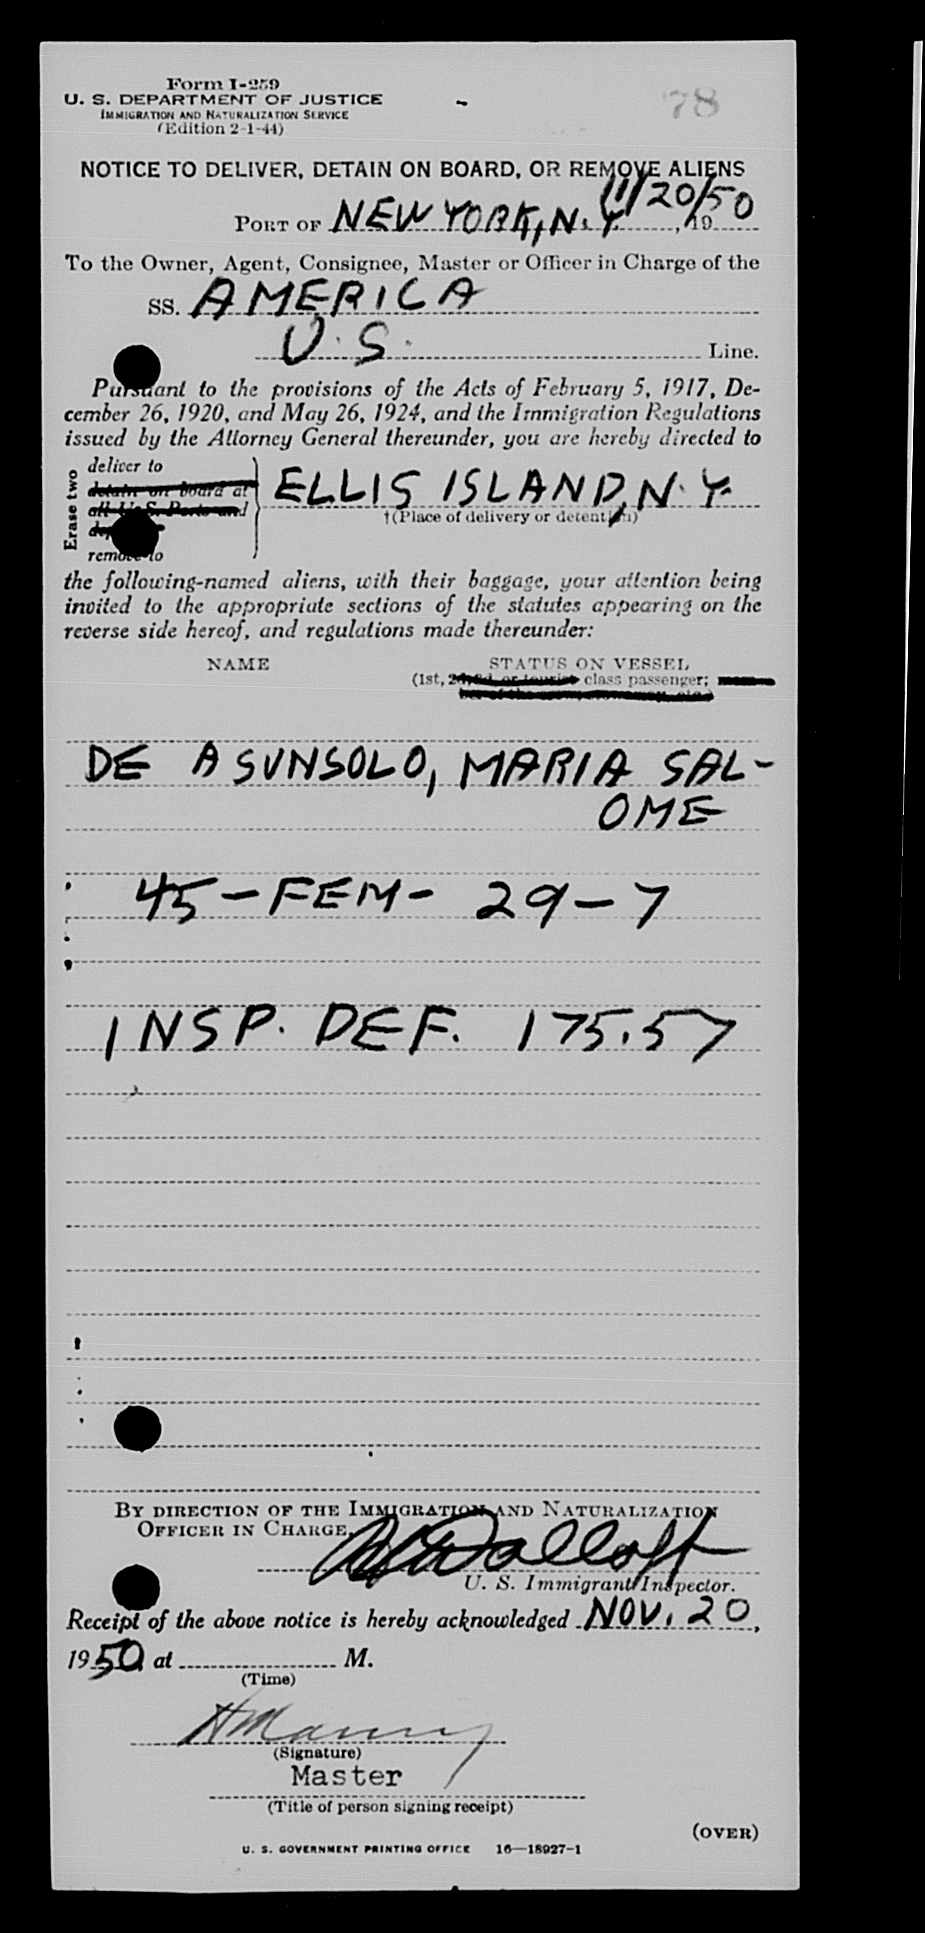 Form I-259
U. S. DEPARTMENT OF JUSTICE
IMMIGRATION AND NATURALIZATION SERVICE
(Edition 2-1-44)
78
NOTICE TO DELIVER, DETAIN ON BOARD, OR REMOVE ALIENS
PORT OF NEW YORK, N.Y. 11/20/50, 19
To the Owner, Agent, Consignee, Master or Officer in Charge of the
SS. AMERICA
U.S. Line.
Pursuant to the provisions of the Acts of February 5, 1917, De-
cember 26, 1920, and May 26, 1924, and the Immigration Regulations
issued by the Attorney General thereunder, you are hereby directed to
Erase two
deliver to
detain on board at
all U. S. Ports and
remove to
ELLIS ISLAND, N.Y.
†(Place of delivery or detention)
the following-named aliens, with their baggage, your attention being
invited to the appropriate sections of the statutes appearing on the
reverse side hereof, and regulations made thereunder:
NAME STATUS ON VESSEL
(1st, 2d, 3d, or tourist class passenger; mem-
ber of the crew, stowaway, etc.)
DE ASUNSOLO, MARIA SAL-
OME
45-FEM- 29-7
INSP. DEF. 175.57
BY DIRECTION OF THE IMMIGRATION AND NATURALIZATION
OFFICER IN CHARGE,
U. S. Immigrant Inspector.
Receipt of the above notice is hereby acknowledged NOV. 20,
1950 at M.
(Time)
(Signature)
Master
(Title of person signing receipt)
(OVER)
U. S. GOVERNMENT PRINTING OFFICE 16—18927-1